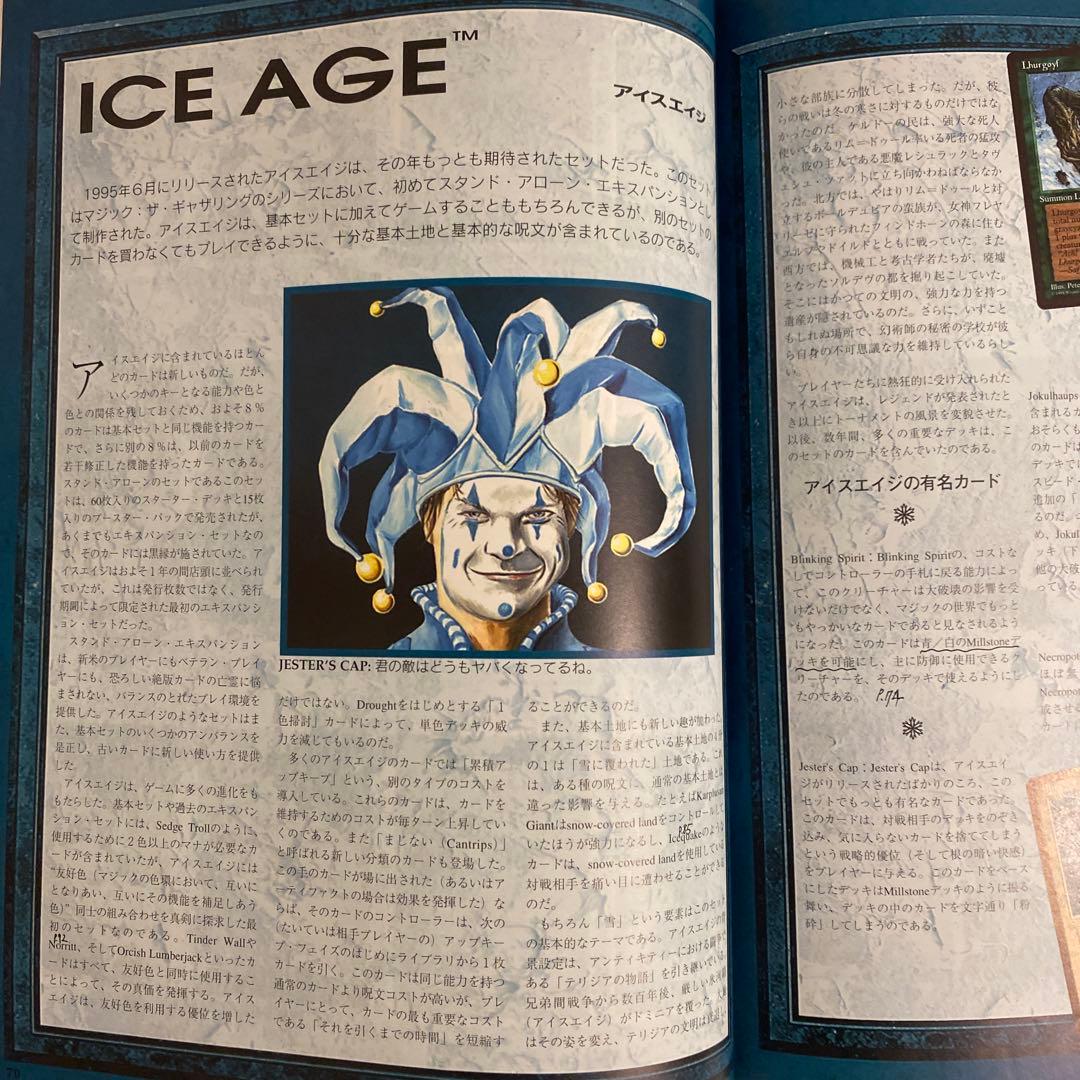 ICE AGE™
アイスエイジ
1995年6月にリリースされたアイスエイジは、その年もっとも期待されたセットだった。このセット
はマジック：ザ・ギャザリングのシリーズにおいて、初めてスタンド・アローン・エキスパンションとし
て制作された。アイスエイジは、基本セットに加えてゲームすることももちろんできるが、別のセットの
カードを買わなくてもプレイできるように、十分な基本土地と基本的な呪文が含まれているのである。
アイスエイジに含まれているほとん
どのカードは新しいものだ。だが、
いくつかのキーとなる能力や色と
色との関係を残しておくため、およそ8%
のカードは基本セットと同じ機能を持つカー
ドで、さらに別の8%は、以前のカードを
若干修正した機能を持ったカードである。
スタンド・アローンのセットであるこのセッ
トは、60枚入りのスターター・デッキと15枚
入りのブースター・パックで発売されたが、
あくまでもエキスパンション・セットなの
で、そのカードには黒縁が施されていた。ア
イスエイジはおよそ1年の間店頭に並べられ
ていたが、これは発行枚数ではなく、発行
期間によって限定された最初のエキスパンシ
ョン・セットだった。
スタンド・アローン・エキスパンション
は、新米のプレイヤーにもベテラン・プレイ
ヤーにも、恐ろしい絶版カードの亡霊に悩
まされない、バランスのとれたプレイ環境を
提供した。アイスエイジのようなセットはま
た、基本セットのいくつかのアンバランスを
是正し、古いカードに新しい使い方を提供
した。
アイスエイジは、ゲームに多くの進化をも
もたらした。基本セットや過去のエキスパン
ション・セットには、Sedge Trollのように、
使用するために2色以上のマナが必要なカ
ードが含まれていたが、アイスエイジには
“友好色（マジックの色環において、互いに
となりあい、互いにその機能を補足しあう
色）”同士の組み合わせを真剣に探求した最
初のセットなのである。Tinder Wallや
P.92
Norritt、そしてOrcish Lumberjackといったカ
ードはすべて、友好色と同時に使用するこ
とによって、その真価を発揮する。アイス
エイジは、友好色を利用する優位を増した
70
JESTER'S CAP: 君の敵はどうもヤバくなってるね。
だけではない。Droughtをはじめとする「1
色掃討」カードによって、単色デッキの威
力を減じてもいるのだ。
多くのアイスエイジのカードでは「累積ア
ップキープ」という、別のタイプのコストを
導入している。これらのカードは、カードを
維持するためのコストが毎ターン上昇してい
くのである。また「まじない（Cantrips）」
と呼ばれる新しい分類のカードも登場した。
この手のカードが場に出された（あるいはア
ーティファクトの場合は効果を発揮した）な
らば、そのカードのコントローラーは、次の
（たいていは相手プレイヤーの）アップキー
プ・フェイズのはじめにライブラリから1枚
カードを引く。このカードは同じ能力を持つ
通常のカードより呪文コストが高いが、プレ
イヤーにとって、カードの最も重要なコスト
である「それを引くまでの時間」を短縮す
ることができるのだ。
また、基本土地にも新しい趣が加わった。
アイスエイジに含まれている基本土地の4分
の1は「雪に覆われた」土地である。これ
は、ある種の呪文に、通常の基本土地とは
違った影響を与える。たとえばKarplusan
Giantはsnow-covered landをコントロールして
いたほうが強力になるし、Icequakeのような
P.85
カードは、snow-covered landを使用している
対戦相手を痛い目に遭わせることができる
のだ。
もちろん「雪」という要素はこのセット
の基本的なテーマである。アイスエイジの背
景設定は、アンティキティーにおける闘争で
ある「テリジアの物語」を引き継いでいる。
兄弟間戦争から数百年後、厳しい氷河期
（アイスエイジ）がドミニアを覆った。大陸
はその姿を変え、テリジアの文明は
小さな部族に分散してしまった。だが、彼
らの戦いは冬の寒さに対するものだけではな
かったのだ。ケルドーの民は、強大な死人
使いであるリム＝ドゥール率いる死者の猛攻
や、彼の主人である悪魔レシュラックとタヴ
ェシュ・ツァットに立ち向かわねばならなか
った。北方では、やはりリム＝ドゥールと対
立するボールデュビアの蛮族が、女神フレイ
アリーゼに守られたウィンドホーンの森に住む
エルフやドイルドとともに戦っていた。また
西方では、機械工と考古学者たちが、廃墟
となったソルデヴの都を掘り起こしていた。
そこにはかつての文明の、強力な力を持つ
遺産が隠されているのだ。さらに、いずこと
もしれぬ場所で、幻術師の秘密の学校が彼
ら自身の不可思議な力を維持しているらし
い。
プレイヤーたちに熱狂的に受け入れられた
アイスエイジは、レジェンドが発表されたと
き以上にトーナメントの風景を変貌させた。
以後、数年間、多くの重要なデッキは、こ
のセットのカードを含んでいたのである。
アイスエイジの有名カード
Blinking Spirit：Blinking Spiritの、コストな
しでコントローラーの手札に戻る能力によっ
て、このクリーチャーは大破壊の影響を受
けないだけでなく、マジックの世界でもっと
もやっかいなカードであると見なされるよう
になった。このカードは青／白のMillstoneデ
ッキを可能にし、主に防御に使用できるク
リーチャーを、そのデッキで使えるようにし
たのである。 P.174
Jester's Cap：Jester's Capは、アイスエイ
ジがリリースされたばかりのころ、この
セットでもっとも有名なカードであった。
このカードは、対戦相手のデッキをのぞき
込み、気に入らないカードを捨ててしまう
という戦略的優位（そして根の暗い快感）
をプレイヤーに与える。このカードをベース
にしたデッキはMillstoneデッキのように振る
舞い、デッキの中のカードを文字通り「粉
砕」してしまうのである。
Lhurgoyf
Summon L
Lhurgo
total nu
gravey
1 plus
creatur
Illus. Pete
Jokulhaups
含まれるカ
おそらくも
のカードは
デッキで
スピード・
追加の「
るのだ。
め、Jokul
ッキ（下
他の大破
っている
Necropot
ほぼ無
Necropo
成させ
カードに